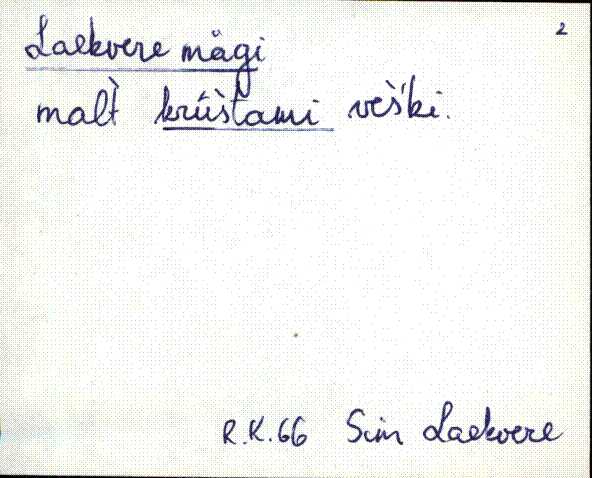 2
Laekvere mägi
malt̀ kríístami veški.
R.K.66 Sim Laekvere